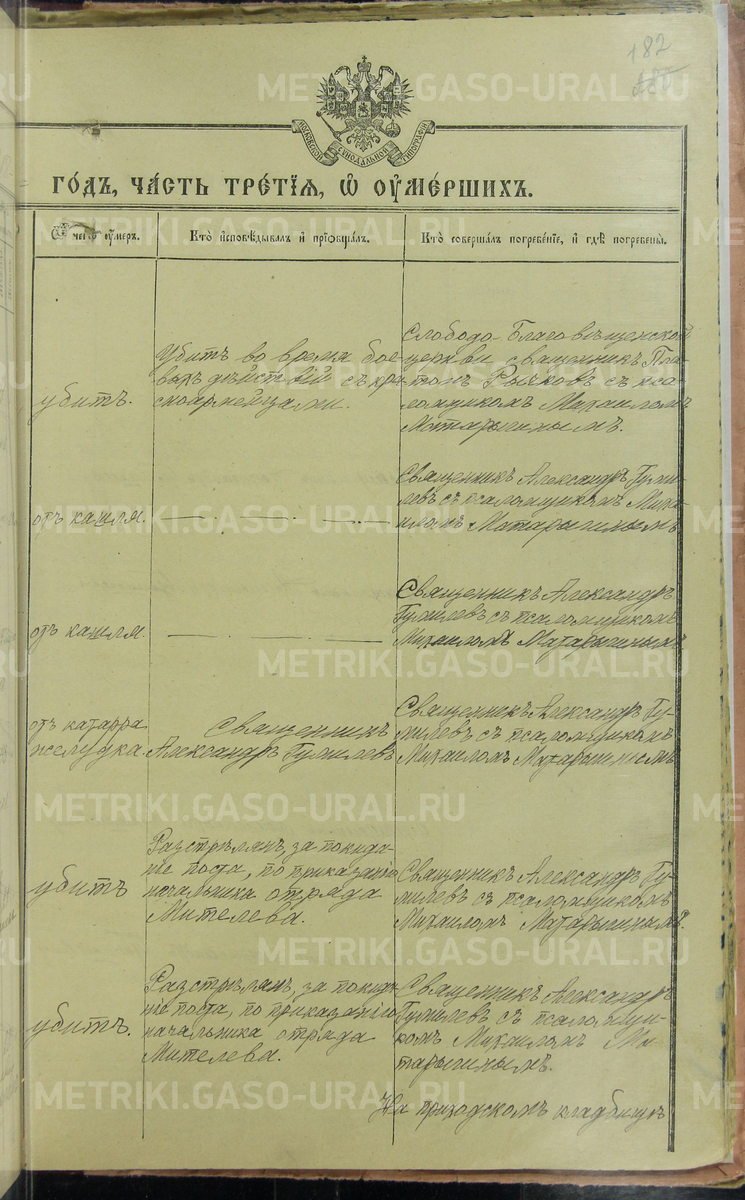 182
180
МОСКОВСКОЙ СѴНОДАЛЬНОЙ ТИПОГРАФІИ
ГОДЪ, ЧАСТЬ ТРЕТІЯ, Ѿ ОУМЕРШИХЪ.
Ѿ чегѡ оумеръ.
Кто исповѣдывалъ и прїѡбщалъ.
Кто совершалъ погребенїе, и гдѣ погребены.
убитъ.
Убитъ во время бое-
выхъ дѣйствій съ кра-
сноармейцами.
Слободо-Благовѣщенской
церкви священникъ Пла-
тонъ Рычковъ съ пса-
ломщикомъ Михаиломъ
Матарыгинымъ.
отъ кашля.
Священникъ Александръ Гуми-
левъ съ псаломщикомъ Миха-
иломъ Матарыгинымъ
отъ кашля.
Священникъ Александръ
Гумилевъ съ псаломщикомъ
Михаиломъ Матарыгинымъ
отъ катарра
желудка
Священникъ
Александръ Гумилевъ
Священникъ Александръ Гу-
милевъ съ псаломщикомъ
Михаиломъ Матарыгинымъ
убитъ
Разстрѣлянъ, за покида-
ніе поста, по приказанію
начальника отряда
Мителева.
Священникъ Александръ Гу-
милевъ съ псаломщикомъ
Михаиломъ Матарыгинымъ.
убитъ.
Разстрѣлянъ, за покида-
ніе поста, по приказанію
начальника отряда
Мителева.
Священникъ Александръ
Гумилевъ съ псаломщи-
комъ Михаиломъ Ма-
тарыгинымъ.
На приходскомъ кладбищѣ
METRIKI.GASO-URAL.RU